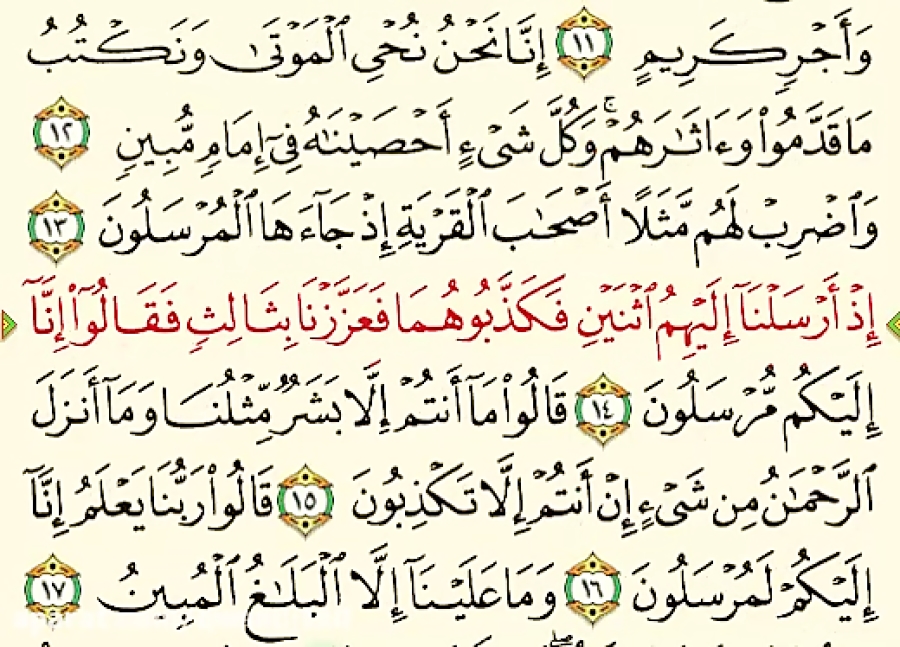 وَأَجْرٍ كَرِيمٍ ١١ إِنَّا نَحْنُ نُحْيِ ٱلْمَوْتَىٰ وَنَكْتُبُ
مَا قَدَّمُوا۟ وَءَاثَـٰرَهُمْ ۚ وَكُلَّ شَىْءٍ أَحْصَيْنَـٰهُ فِىٓ إِمَامٍ مُّبِينٍ ١٢
وَٱضْرِبْ لَهُم مَّثَلًا أَصْحَـٰبَ ٱلْقَرْيَةِ إِذْ جَآءَهَا ٱلْمُرْسَلُونَ ١٣
إِذْ أَرْسَلْنَآ إِلَيْهِمُ ٱثْنَيْنِ فَكَذَّبُوهُمَا فَعَزَّزْنَا بِثَالِثٍ فَقَالُوٓا۟ إِنَّآ
إِلَيْكُم مُّرْسَلُونَ ١٤ قَالُوا۟ مَآ أَنتُمْ إِلَّا بَشَرٌ مِّثْلُنَا وَمَآ أَنزَلَ
ٱلرَّحْمَـٰنُ مِن شَىْءٍ إِنْ أَنتُمْ إِلَّا تَكْذِبُونَ ١٥ قَالُوا۟ رَبُّنَا يَعْلَمُ إِنَّآ
إِلَيْكُمْ لَمُرْسَلُونَ ١٦ وَمَا عَلَيْنَآ إِلَّا ٱلْبَلَـٰغُ ٱلْمُبِينُ ١٧